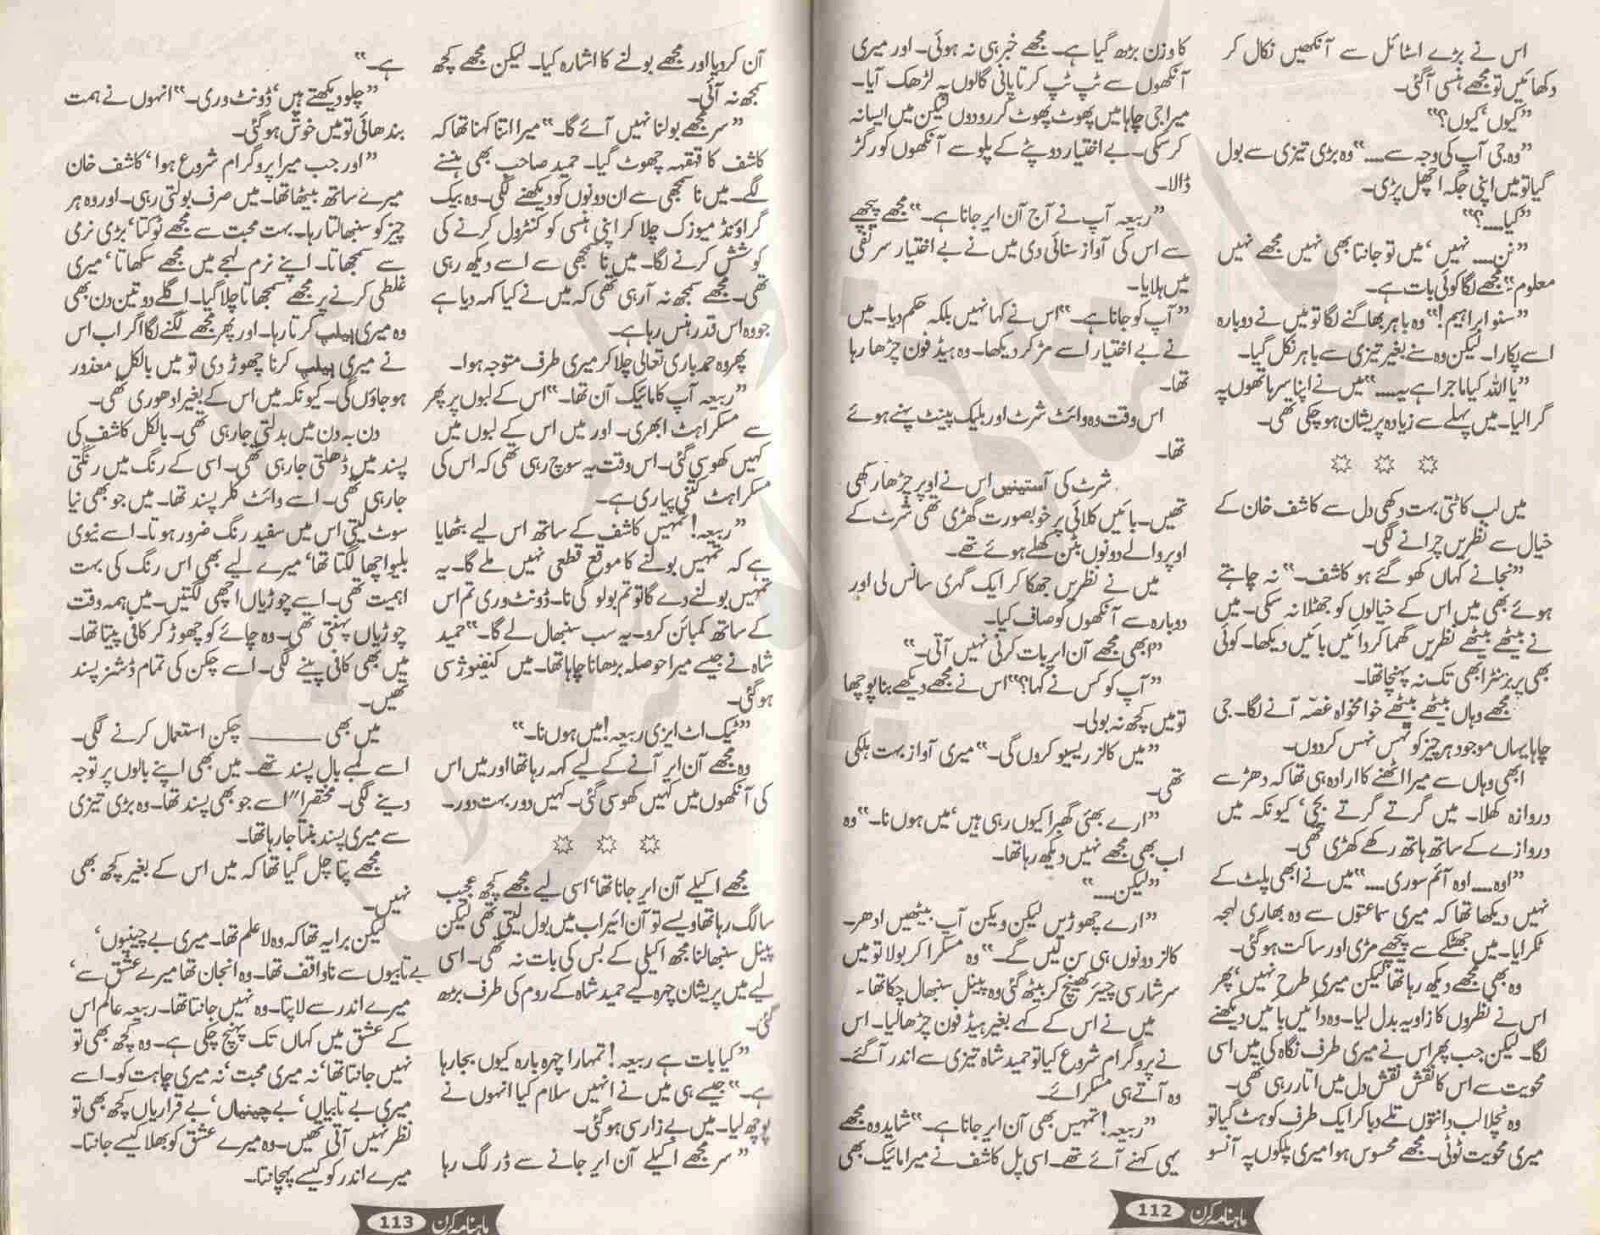 اس نے بڑے اسٹائل سے آنکھیں نکال کر
دکھائیں تو مجھے ہنسی آ گئی۔
”کیوں‘ کیوں؟“
”وہ جی آپ کی وجہ سے۔۔۔۔“ وہ بڑی تیزی سے بول
گیا تو میں اپنی جگہ اچھل پڑی۔
”کیا۔۔۔۔؟“
”نن۔۔۔۔ نہیں‘ میں تو جانتا بھی نہیں مجھے نہیں
معلوم“ مجھے لگا کوئی بات ہے۔
”سنو ابراہیم!“ وہ باہر بھاگنے لگا تو میں نے دوبارہ
اسے پکارا۔ لیکن وہ سنے بغیر تیزی سے باہر نکل گیا۔
”یا اللہ کیا ماجرا ہے یہ۔۔۔۔“ میں نے اپنا سر ہاتھوں پہ
گرا لیا۔ میں پہلے سے زیادہ پریشان ہو چکی تھی۔
میں لب کاٹتی بہت دکھی دل سے کاشف خان کے
خیال سے نظریں چرانے لگی۔
”نجانے کہاں کھو گئے ہو کاشف۔“ نہ چاہتے
ہوئے بھی میں اس کے خیالوں کو جھٹلا نہ سکی۔ میں
نے بیٹھے بیٹھے نظریں گھما کر دائیں بائیں دیکھا۔ کوئی
بھی پریزنٹر ابھی تک نہ پہنچا تھا۔
مجھے وہاں بیٹھے بیٹھے خوامخواہ غصہ آنے لگا۔ جی
چاہا یہاں موجود ہر چیز کو تہس نہس کر دوں۔
ابھی وہاں سے میرا اٹھنے کا ارادہ ہی تھا کہ دھڑ سے
دروازہ کھلا۔ میں گرتے گرتے بچی‘ کیونکہ میں
دروازے کے ساتھ ہاتھ رکھے کھڑی تھی۔
”اوہ۔۔۔۔ اوہ آئم سوری۔۔۔۔“ میں نے ابھی پلٹ کے
نہیں دیکھا تھا کہ میری سماعتوں سے وہ بھاری لہجہ
ٹکرایا۔ میں جھٹکے سے پیچھے مڑی اور ساکت ہو گئی۔
وہ بھی مجھے دیکھ رہا تھا لیکن میری طرح نہیں‘ پھر
اس نے نظروں کا زاویہ بدل لیا۔ وہ دائیں بائیں دیکھنے
لگا۔ لیکن جب پھر اس نے میری طرف نگاہ کی میں اسی
محویت سے اس کا نقش نقش دل میں اتار رہی تھی۔
وہ نچلا لب دانتوں تلے دبا کر ایک طرف کو ہٹ گیا تو
میری محویت ٹوٹی۔ مجھے محسوس ہوا میری پلکوں پہ آنسو
کا وزن بڑھ گیا ہے۔ مجھے خبر ہی نہ ہوئی۔ اور میری
آنکھوں سے ٹپ ٹپ کرتا پانی گالوں پہ لڑھک آیا۔
میرا جی چاہا میں پھوٹ پھوٹ کر رو دوں لیکن میں ایسا نہ
کر سکی۔ بے اختیار دوپٹے کے پلو سے آنکھوں کو رگڑ
ڈالا۔
”ربیعہ آپ نے آج آن ایر جانا ہے۔“ مجھے پیچھے
سے اس کی آواز سنائی دی میں نے بے اختیار سر نفی
میں ہلایا۔
”آپ کو جانا ہے۔“ اس نے کہا نہیں بلکہ حکم دیا۔ میں
نے بے اختیار اسے مڑ کر دیکھا۔ وہ ہیڈ فون چڑھا رہا
تھا۔
اس وقت وہ وائٹ شرٹ اور بلیک پینٹ پہنے ہوئے
تھا۔
شرٹ کی آستینیں اس نے اوپر چڑھا رکھی
تھیں۔ بائیں کلائی پر خوبصورت گھڑی تھی شرٹ کے
اوپر والے دونوں بٹن کھلے ہوئے تھے۔
میں نے نظریں جھکا کر ایک گہری سانس لی اور
دوبارہ سے آنکھوں کو صاف کیا۔
”ابھی مجھے آن ایر بات کرنی نہیں آتی۔“
”آپ کو کس نے کہا؟“ اس نے مجھے دیکھے بنا پوچھا
تو میں کچھ نہ بولی۔
”میں کالز ریسیو کروں گی۔“ میری آواز بہت ہلکی
تھی۔
”ارے بھئی گھبرا کیوں رہی ہیں‘ میں ہوں نا۔“ وہ
اب بھی مجھے نہیں دیکھ رہا تھا۔
”لیکن۔۔۔۔“
”ارے چھوڑیں لیکن ویکن آپ بیٹھیں ادھر۔
کالز دونوں ہی سن لیں گے۔“ وہ مسکرا کر بولا تو میں
سرشار سی چیئر کھینچ کر بیٹھ گئی وہ پینل سنبھال چکا تھا۔
میں نے اس کے کہے بغیر ہیڈ فون چڑھا لیا۔ اس
نے پروگرام شروع کیا تو حمید شاہ تیزی سے اندر آ گئے۔
وہ آتے ہی مسکرائے۔
”ربیعہ! تمہیں بھی آن ایر جانا ہے۔“ شاید وہ مجھے
یہی کہنے آئے تھے۔ اسی پل کاشف نے میرا مائیک بھی
ماہنامہ کرن 112
آن کر دیا اور مجھے بولنے کا اشارہ کیا۔ لیکن مجھے کچھ
سمجھ نہ آئی۔
”سر مجھے بولنا نہیں آئے گا۔“ میرا اتنا کہنا تھا کہ
کاشف کا قہقہہ چھوٹ گیا۔ حمید صاحب بھی ہنسنے
لگے۔ میں نا سمجھی سے ان دونوں کو دیکھنے لگی۔ وہ بیک
گراؤنڈ میوزک چلا کر اپنی ہنسی کو کنٹرول کرنے کی
کوشش کرنے لگا۔ میں نا سمجھی سے اسے دیکھ رہی
تھی۔ مجھے سمجھ نہ آ رہی تھی کہ میں نے کیا کہہ دیا ہے
جو وہ اس قدر ہنس رہا ہے۔
پھر وہ حمد باری تعالی چلا کر میری طرف متوجہ ہوا۔
”ربیعہ آپ کا مائیک آن تھا۔“ اس کے لبوں پر پھر
سے مسکراہٹ ابھری۔ اور میں اس کے لبوں میں
کہیں کھو سی گئی۔ اس وقت یہ سوچ رہی تھی کہ اس کی
مسکراہٹ کتنی پیاری ہے۔
”ربیعہ! تمہیں کاشف کے ساتھ اس لیے بٹھایا
ہے کہ تمہیں بولنے کا موقع قطعی نہیں ملے گا۔ یہ
تمہیں بولنے دے گا تو تم بولو گی نا۔ ڈونٹ وری تم اس
کے ساتھ کمبائن کرو۔ یہ سب سنبھال لے گا۔“ حمید
شاہ نے جیسے میرا حوصلہ بڑھانا چاہا تھا۔ میں کنفیوژ سی
ہو گئی۔
”ٹیک اٹ ایزی ربیعہ! میں ہوں نا۔“
وہ مجھے آن ایر آنے کے لیے کہہ رہا تھا اور میں اس
کی آنکھوں میں کہیں کھو سی گئی۔ کہیں دور بہت دور۔
مجھے اکیلے آن ایر جانا تھا‘ اسی لیے مجھے کچھ عجیب
سا لگ رہا تھا ویسے تو آن ائیر اب میں بول لیتی تھی لیکن
پینل سنبھالنا مجھ اکیلی کے بس کی بات نہ تھی۔ اسی
لیے میں پریشان چہرہ لیے حمید شاہ کے روم کی طرف بڑھ
گئی۔
”کیا بات ہے ربیعہ! تمہارا چہرہ بارہ کیوں بجا رہا
ہے۔“ جیسے ہی میں نے انہیں سلام کیا انہوں نے
پوچھ لیا۔ میں بے زار سی ہو گئی۔
”سر مجھے اکیلے آن ایر جانے سے ڈر لگ رہا
ہے۔“
”چلو دیکھتے ہیں‘ ڈونٹ وری۔“ انہوں نے ہمت
بندھائی تو میں خوش ہو گئی۔
”اور جب میرا پروگرام شروع ہوا‘ کاشف خان
میرے ساتھ بیٹھا تھا۔ میں صرف بولتی رہی۔ اور وہ ہر
چیز کو سنبھالتا رہا۔ بہت محبت سے مجھے ٹوکتا‘ بڑی نرمی
سے سمجھاتا۔ اپنے نرم لہجے میں مجھے سکھاتا‘ میری
غلطی کرنے پر مجھے سمجھاتا چلا گیا۔ اگلے دو تین دن بھی
وہ میری ہیلپ کرتا رہا۔ اور پھر مجھے لگنے لگا اگر اب اس
نے میری ہیلپ کرنا چھوڑ دی تو میں بالکل معذور
ہو جاؤں گی۔ کیونکہ میں اس کے بغیر ادھوری تھی۔
دن بہ دن میں بدلتی جا رہی تھی۔ بالکل کاشف کی
پسند میں ڈھلتی جا رہی تھی۔ اسی کے رنگ میں رنگتی
جا رہی تھی۔ اسے وائٹ کلر پسند تھا۔ میں جو بھی نیا
سوٹ لیتی اس میں سفید رنگ ضرور ہوتا۔ اسے نیوی
بلیو اچھا لگتا تھا‘ میرے لیے بھی اس رنگ کی بہت
اہمیت تھی۔ اسے چوڑیاں اچھی لگتیں۔ میں ہمہ وقت
چوڑیاں پہنتی تھی۔ وہ چائے کو چھوڑ کر کافی پیتا تھا۔
میں بھی کافی پینے لگی۔ اسے چکن کی تمام ڈشنز پسند
تھیں۔
میں بھی ـــــــــ چکن استعمال کرنے لگی۔
اسے لمبے بال پسند تھے۔ میں بھی اپنے بالوں پر توجہ
دینے لگی۔ مختصراً اسے جو بھی پسند تھا۔ وہ بڑی تیزی
سے میری پسند بنتا جا رہا تھا۔
مجھے پتا چل گیا تھا کہ میں اس کے بغیر کچھ بھی
نہیں۔
لیکن برا یہ تھا کہ وہ لا علم تھا۔ میری بے چینیوں‘
بے تابیوں سے ناواقف تھا۔ وہ انجان تھا میرے عشق سے‘
میرے اندر سے لاپتا۔ وہ نہیں جانتا تھا۔ ربیعہ عالم اس
کے عشق میں کہاں تک پہنچ چکی ہے۔ وہ کچھ بھی تو
نہیں جانتا تھا‘ نہ میری محبت‘ نہ میری چاہت کو۔ اسے
میری بے تابیاں‘ بے چینیاں‘ بے قراریاں کچھ بھی تو
نظر نہیں آتی تھیں۔ وہ میرے عشق کو بھلا کیسے جانتا۔
میرے اندر کو کیسے پہچانتا۔
ماہنامہ کرن 113